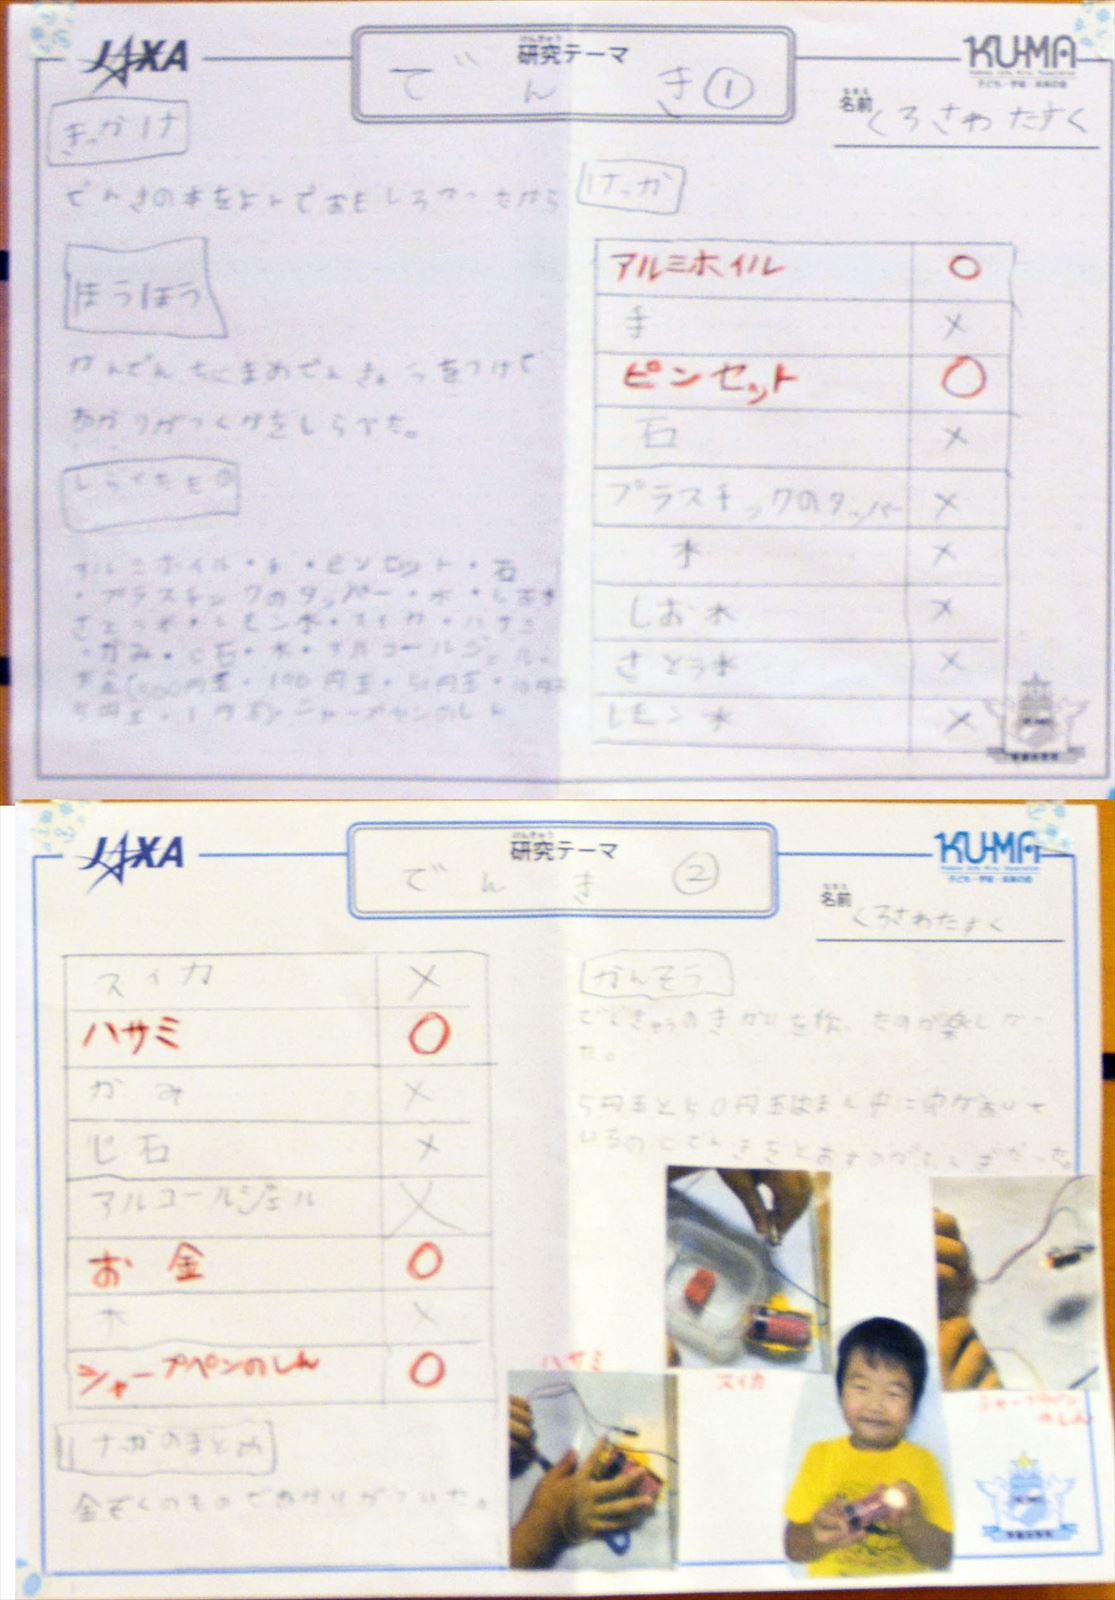 JAXA
けんきゅう
研究テーマ
でんき①
KU-MA
子ども・宇宙・未来の会
なまえ
名前
くろさわ たすく
きっかけ
でんきの本をよんでおもしろかったから
ほうほう
かんでんちにまめでんきゅうをつけて
あかりがつくかをしらべた。
しらべたもの
アルミホイル・手・ピンセット・石
・プラスチックのタッパー・水・しお水
さとう水・レモン水・スイカ・ハサミ
・かみ・じ石・木・アルコールジェル・
お金(500円玉・100円玉・50円玉・10円玉
5円玉・1円玉)・シャープペンのしん
けっか
アルミホイル ○
手 ×
ピンセット ○
石 ×
プラスチックのタッパー ×
水 ×
しお水 ×
さとう水 ×
レモン水 ×
JAXA
けんきゅう
研究テーマ
でんき②
KU-MA
子ども・宇宙・未来の会
なまえ
名前
くろさわたすく
スイカ ×
ハサミ ○
かみ ×
じ石 ×
アルコールジェル ×
お金 ○
木 ×
シャープペンのしん ○
けっかのまとめ
金ぞくのものであかりがついた。
かんそう
でんきゅうのきかいを作ったのが楽しかっ
た。
5円玉と50円玉はまん中に穴があいて
いるのにでんきをとおすのがふしぎだった。
ハサミ
スイカ
シャープペン
のしん